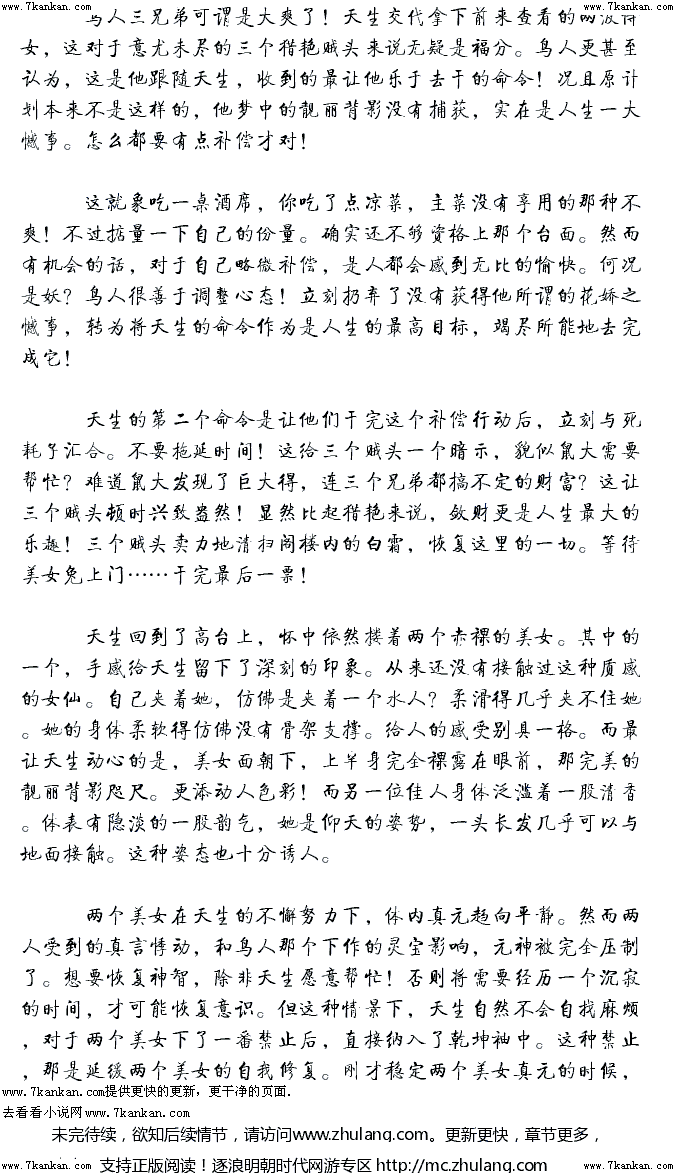 www.7kankan.com www.7kankan.com
鸟人三兄弟可谓是大爽了！天生交代拿下前来查看的两波侍
女，这对于意尤未尽的三个猎艳贼头来说无疑是福分。鸟人更甚至
认为，这是他跟随天生，收到的最让他乐于去干的命令！况且原计
划本来不是这样的，他梦中的靓丽背影没有捕获，实在是人生一大
憾事。怎么都要有点补偿才对！
这就象吃一桌酒席，你吃了点凉菜，主菜没有享用的那种不
爽！不过掂量一下自己的份量。确实还不够资格上那个台面。然而
有机会的话，对于自己略微补偿，是人都会感到无比的愉快。何况
是妖？鸟人很善于调整心态！立刻扔弃了没有获得他所谓的花娇之
憾事，转为将天生的命令作为是人生的最高目标，竭尽所能地去完
成它！
天生的第二个命令是让他们干完这个补偿行动后，立刻与死
耗子汇合。不要拖延时间！这给三个贼头一个暗示，貌似鼠大需要
帮忙？难道鼠大发现了巨大得，连三个兄弟都搞不定的财富？这让
三个贼头顿时兴致盎然！显然比起猎艳来说，敛财更是人生最大的
乐趣！三个贼头卖力地清扫阁楼内的白霜，恢复这里的一切。等待
美女兔上门……干完最后一票！
天生回到了高台上，怀中依然搂着两个赤裸的美女。其中的
一个，手感给天生留下了深刻的印象。从来还没有接触过这种质感
的女仙。自己夹着她，仿佛是夹着一个水人？柔滑得几乎夹不住她
。她的身体柔软得仿佛没有骨架支撑。给人的感受别具一格。而最
让天生动心的是，美女面朝下，上半身完全裸露在眼前，那完美的
靓丽背影咫尺。更添动人色彩！而另一位佳人身体泛滥着一股清香
。体表有隐淡的一股韵气，她是仰天的姿势，一头长发几乎可以与
地面接触。这种姿态也十分诱人。
两个美女在天生的不懈努力下，体内真元趋向平静。然而两
人受到的真言悸动，和鸟人那个下作的灵宝影响，元神被完全压制
了。想要恢复神智，除非天生愿意帮忙！否则将需要经历一个沉寂
的时间，才可能恢复意识。但这种情景下，天生自然不会自找麻烦
，对于两个美女下了一番禁止后，直接纳入了乾坤袖中。这种禁止
，那是延缓两个美女的自我修复。刚才稳定两个美女真元的时候，
www.7kankan.com提供更快的更新，更干净的页面.
去看看小说网www.7kankan.com
未完待续，欲知后续情节，请访问www.zhulang.com。更新更快，章节更多，
支持正版阅读！逐浪明朝时代网游专区 http://mc.zhulang.com